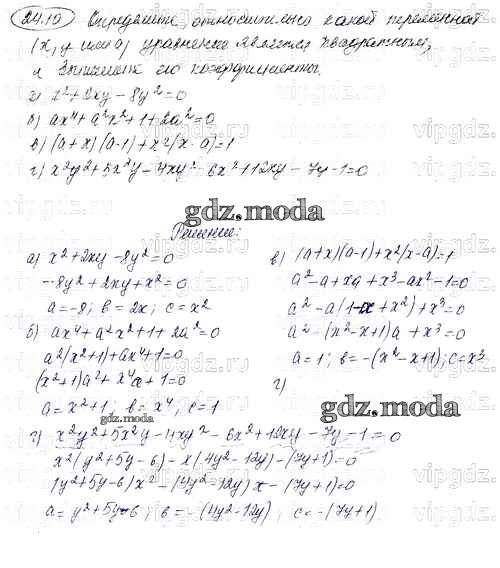 24.19) Определите, относительно какой переменной
(x, y или a) уравнение является квадратным,
и запишите его коэффициенты.
а) x²+2xy-8y²=0
б) ax⁴+a²x²+1+2a²=0
в) (a+x)(a-1)+x²(x-a)=1
г) x²y²+5x²y-4xy²-6x²+12xy-7y-1=0
gdz.moda
Решение:
а) x²+2xy-8y²=0
-8y²+2xy+x²=0
a=-8; b=2x; c=x²
б) ax⁴+a²x²+1+2a²=0
a²(x²+1)+ax⁴+1=0
(x²+1)a²+x⁴a+1=0
a=x²+1; b=x⁴; c=1
в) (a+x)(a-1)+x²(x-a)=1
a²-a+xa+x³-ax²-1=0
a²-a(1-x+x²)+x³=0
a²-(x²-x+1)a+x³=0
a=1; b=-(x²-x+1); c=x³
г)
gdz.moda
г) x²y²+5x²y-4xy²-6x²+12xy-7y-1=0
x²(y²+5y-6)-x(4y²-12y)-(7y+1)=0
(y²+5y-6)x²-(4y²-12y)x-(7y+1)=0
a=y²+5y-6; b=-(4y²-12y); c=-(7y+1)
gdz.moda